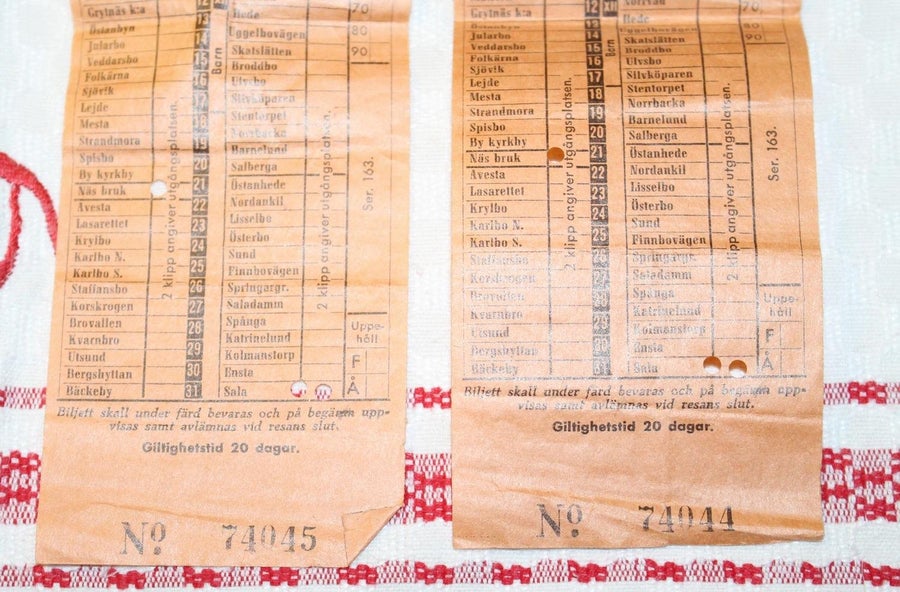 Grytnäs k:a 12 XII
13 Hede 70
14 Uggelbovägen 80
Jularbo Skalslätten 90
Veddarsbo 15 Barn Broddbo
Folkärna 16 Ulvsbo
Sjövik 17 Silvköparen
Lejde Stentorpet
Mesta 18 Norrbacka
Strandmora 19 Barnelund
Spisbo 20 Salberga
By kyrkby Östanhede
Näs bruk 21 Nordankil
Avesta 22 Lisselbo
Lasarettet 23 Österbo
Krylbo 24 Sund
Karlbo N. Finnbovägen
Karlbo S. 25 Springargr.
Staffansbo 26 Saladamm
Korskrogen 27 Spånga
Brovallen 28 Katrinelund
Kvarnbro Kolmanstorp
Utsund 29 Ensta
Bergshyttan 30 Sala
Bäckeby 31
2 klipp angiver utgångsplatsen.
2 klipp angiver utgångsplatsen.
Ser. 163.
Uppe-
håll
F
Å
Biljett skall under färd bevaras och på begäran upp-
visas samt avlämnas vid resans slut.
Giltighetstid 20 dagar.
No. 74045
Grytnäs k:a 12 XII
13 Hede
Jularbo 14 Uggelbovägen 80
Veddarsbo 15 Barn Skalslätten 90
Folkärna Broddbo
Sjövik 16 Ulvsbo
Lejde 17 Silvköparen
Mesta 18 Stentorpet
Strandmora 19 Norrbacka
Spisbo 20 Barnelund
By kyrkby Salberga
Näs bruk 21 Östanhede
Avesta 22 Nordankil
Lasarettet 23 Lisselbo
Krylbo 24 Österbo
Karlbo N. Sund
Karlbo S. 25 Finnbovägen
Staffansbo 26 Springargr.
Korskrogen 27 Saladamm
Brovallen 28 Spånga
Kvarnbro Katrinelund
Utsund 29 Kolmanstorp
Bergshyttan 30 Ensta
Bäckeby 31 Sala
2 klipp angiver utgångsplatsen.
2 klipp angiver utgångsplatsen.
Ser. 163.
Uppe-
håll
F
Å
Biljett skall under färd bevaras och på begäran upp-
visas samt avlämnas vid resans slut.
Giltighetstid 20 dagar.
No. 74044